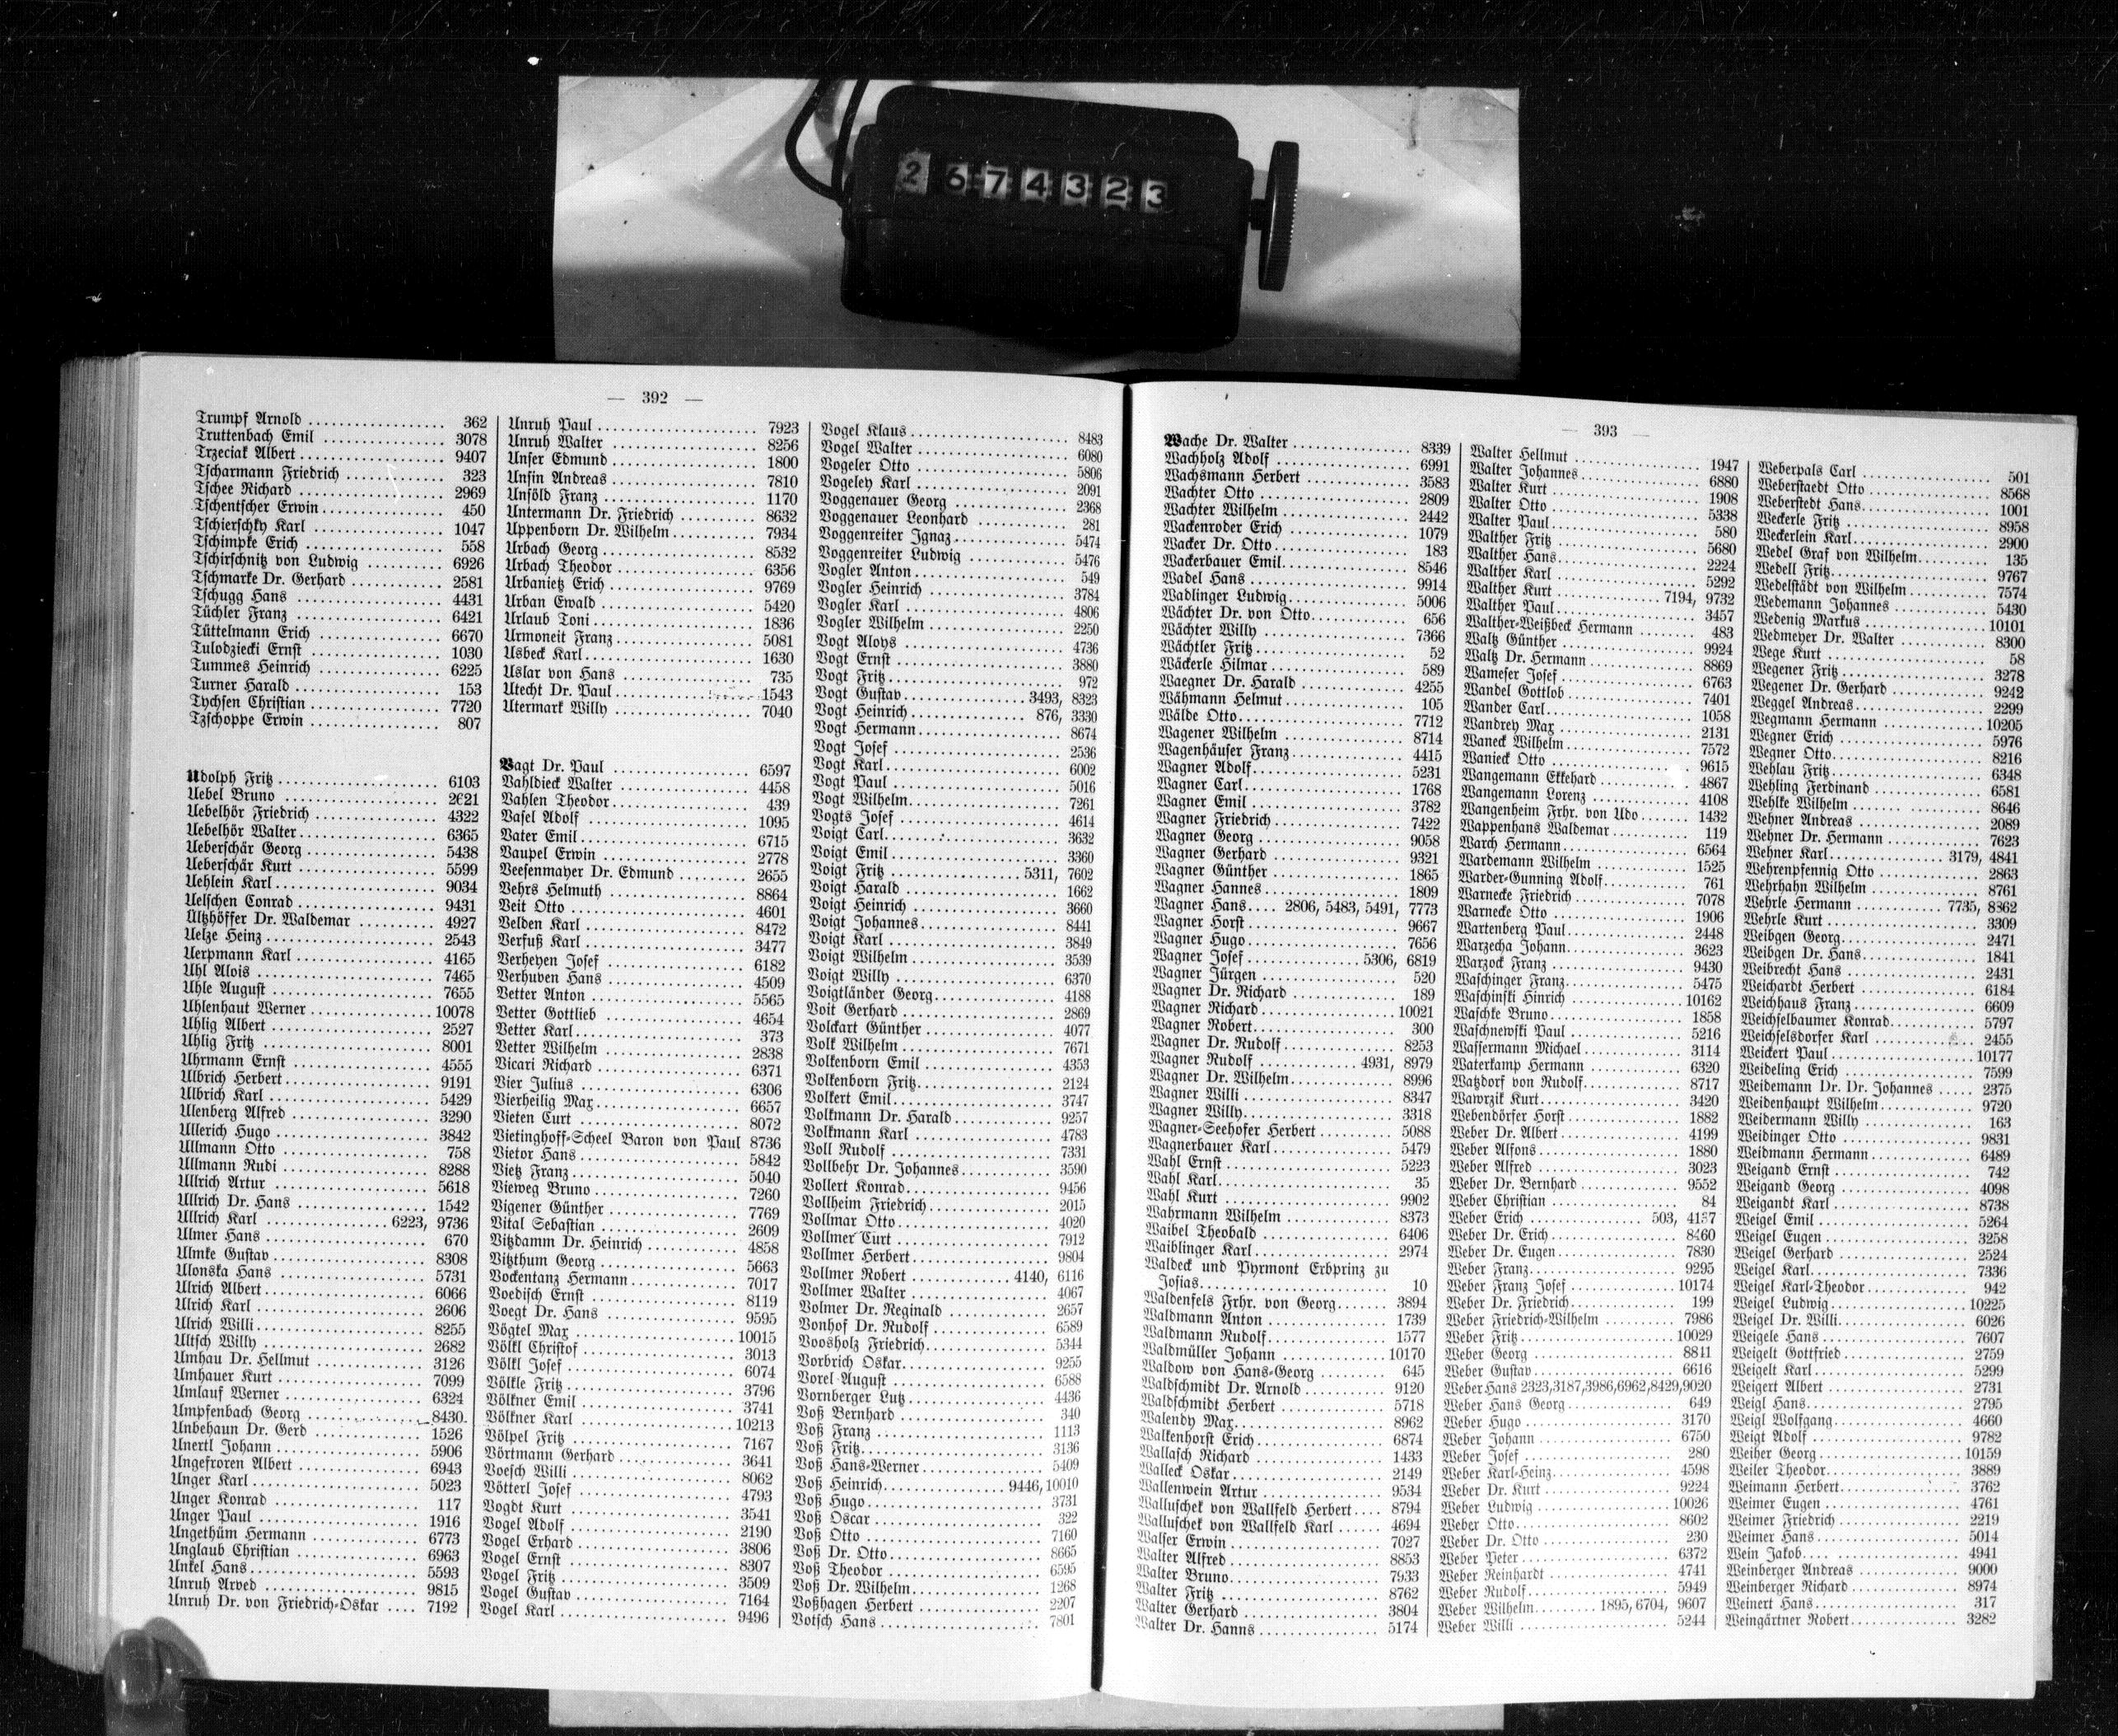 2674323
— 392 —
Trumpf Arnold 362
Truttenbach Emil 3078
Trzeciak Albert 9407
Tscharmann Friedrich 323
Tschee Richard 2969
Tschentscher Erwin 450
Tschierschky Karl 1047
Tschimpke Erich 558
Tschirschnitz von Ludwig 6926
Tschmarke Dr. Gerhard 2581
Tschugg Hans 4431
Tüchler Franz 6421
Tüttelmann Erich 6670
Tulodziecki Ernst 1030
Tummes Heinrich 6225
Turner Harald 153
Tychsen Christian 7720
Tzschoppe Erwin 807
Udolph Fritz 6103
Uebel Bruno 2621
Uebelhör Friedrich 4322
Uebelhör Walter 6365
Ueberschär Georg 5438
Ueberschär Kurt 5599
Uehlein Karl 9034
Uelschen Conrad 9431
Ültzhöffer Dr. Waldemar 4927
Uelze Heinz 2543
Uerpmann Karl 4165
Uhl Alois 7465
Uhle August 7655
Uhlenhaut Werner 10078
Uhlig Albert 2527
Uhlig Fritz 8001
Uhrmann Ernst 4555
Ulbrich Herbert 9191
Ulbrich Karl 5429
Ulenberg Alfred 3290
Ullerich Hugo 3842
Ullmann Otto 758
Ullmann Rudi 8288
Ullrich Artur 5618
Ullrich Dr. Hans 1542
Ullrich Karl 6223, 9736
Ulmer Hans 670
Ulmke Gustav 8308
Ulonska Hans 5731
Ulrich Albert 6066
Ulrich Karl 2606
Ulrich Willi 8255
Ultsch Willy 2682
Umhau Dr. Hellmut 3126
Umhauer Kurt 7099
Umlauf Werner 6324
Umpfenbach Georg 8430
Unbehaun Dr. Gerd 1526
Unertl Johann 5906
Ungefroren Albert 6943
Unger Karl 5023
Unger Konrad 117
Unger Paul 1916
Ungethüm Hermann 6773
Unglaub Christian 6963
Unkel Hans 5593
Unruh Arved 9815
Unruh Dr. von Friedrich-Oskar 7192
Unruh Paul 7923
Unruh Walter 8256
Unser Edmund 1800
Unsin Andreas 7810
Unsöld Franz 1170
Untermann Dr. Friedrich 8632
Uppenborn Dr. Wilhelm 7934
Urbach Georg 8532
Urbach Theodor 6356
Urbanietz Erich 9769
Urban Ewald 5420
Urlaub Toni 1836
Urmoneit Franz 5081
Usbeck Karl 1630
Uslar von Hans 735
Utecht Dr. Paul 1543
Utermark Willy 7040
Vagt Dr. Paul 6597
Vahldieck Walter 4458
Vahlen Theodor 439
Vasel Adolf 1095
Vater Emil 6715
Vaupel Erwin 2778
Veesenmayer Dr. Edmund 2655
Vehrs Helmuth 8864
Veit Otto 4601
Velden Karl 8472
Verfuß Karl 3477
Verheyen Josef 6182
Verhuven Hans 4509
Vetter Anton 5565
Vetter Gottlieb 4654
Vetter Karl 373
Vetter Wilhelm 2838
Vicari Richard 6371
Vier Julius 6306
Vierheilig Max 6657
Vieten Curt 8072
Vietinghoff-Scheel Baron von Paul 8736
Vietor Hans 5842
Vietz Franz 5040
Vieweg Bruno 7260
Vigener Günther 7769
Vital Sebastian 2609
Vitzdamm Dr. Heinrich 4858
Vitzthum Georg 5663
Vockentanz Hermann 7017
Voedisch Ernst 8119
Voegt Dr. Hans 9595
Vögtel Max 10015
Völkl Christof 3013
Völkl Josef 6074
Völkle Fritz 3796
Völkner Emil 3741
Völkner Karl 10213
Völpel Fritz 7167
Vörtmann Gerhard 3641
Voesch Willi 8062
Vötterl Josef 4793
Vogdt Kurt 3541
Vogel Adolf 2190
Vogel Erhard 3806
Vogel Ernst 8307
Vogel Fritz 3509
Vogel Gustav 7164
Vogel Karl 9496
Vogel Klaus 8483
Vogel Walter 6080
Vogeler Otto 5806
Vogeley Karl 2091
Voggenauer Georg 2368
Voggenauer Leonhard 281
Voggenreiter Ignaz 5474
Voggenreiter Ludwig 5476
Vogler Anton 549
Vogler Heinrich 3784
Vogler Karl 4806
Vogler Wilhelm 2250
Vogt Aloys 4736
Vogt Ernst 3880
Vogt Fritz 972
Vogt Gustav 3493, 8323
Vogt Heinrich 876, 3330
Vogt Hermann 8674
Vogt Josef 2536
Vogt Karl 6002
Vogt Paul 5016
Vogt Wilhelm 7261
Vogts Josef 4614
Voigt Carl 3632
Voigt Emil 3360
Voigt Fritz 5311, 7602
Voigt Harald 1662
Voigt Heinrich 3660
Voigt Johannes 8441
Voigt Karl 3849
Voigt Wilhelm 3539
Voigt Willy 6370
Voigtländer Georg 4188
Voit Gerhard 2869
Volckart Günther 4077
Volk Wilhelm 7671
Volkenborn Emil 4353
Volkenborn Fritz 2124
Volkert Emil 3747
Volkmann Dr. Harald 9257
Volkmann Karl 4783
Voll Rudolf 7331
Vollbehr Dr. Johannes 3590
Vollert Konrad 9456
Vollheim Friedrich 2015
Vollmar Otto 4020
Vollmer Curt 7912
Vollmer Herbert 9804
Vollmer Robert 4140, 6116
Vollmer Walter 4067
Volmer Dr. Reginald 2657
Vonhof Dr. Rudolf 6589
Voosholz Friedrich 5344
Vorbrich Oskar 9255
Vorel August 6588
Vornberger Lutz 4436
Voß Bernhard 340
Voß Franz 1113
Voß Fritz 3136
Voß Hans-Werner 5409
Voß Heinrich 9446, 10010
Voß Hugo 3731
Voß Oscar 322
Voß Otto 7160
Voß Dr. Otto 8665
Voß Theodor 6595
Voß Dr. Wilhelm 1268
Voßhagen Herbert 2207
Votsch Hans 7801
— 393 —
Wache Dr. Walter 8339
Wachholz Adolf 6991
Wachsmann Herbert 3583
Wachter Otto 2809
Wachter Wilhelm 2442
Wackenroder Erich 1079
Wacker Dr. Otto 183
Wackerbauer Emil 8546
Wadel Hans 9914
Wadlinger Ludwig 5006
Wächter Dr. von Otto 656
Wächter Willy 7366
Wächtler Fritz 52
Wäckerle Hilmar 589
Waegner Dr. Harald 4255
Wähmann Helmut 105
Wälde Otto 7712
Wagener Wilhelm 8714
Wagenhäuser Franz 4415
Wagner Adolf 5231
Wagner Carl 1768
Wagner Emil 3782
Wagner Friedrich 7422
Wagner Georg 9058
Wagner Gerhard 9321
Wagner Günther 1865
Wagner Hannes 1809
Wagner Hans 2806, 5483, 5491, 7773
Wagner Horst 9667
Wagner Hugo 7656
Wagner Josef 5306, 6819
Wagner Jürgen 520
Wagner Dr. Richard 189
Wagner Richard 10021
Wagner Robert 300
Wagner Dr. Rudolf 8253
Wagner Rudolf 4931, 8979
Wagner Dr. Wilhelm 8996
Wagner Willi 8347
Wagner Willy 3318
Wagner-Seehofer Herbert 5088
Wagnerbauer Karl 5479
Wahl Ernst 5223
Wahl Karl 35
Wahl Kurt 9902
Wahrmann Wilhelm 8373
Waibel Theobald 6406
Waiblinger Karl 2974
Waldeck und Pyrmont Erbprinz zu
Josias 10
Waldenfels Frhr. von Georg 3894
Waldmann Anton 1739
Waldmann Rudolf 1577
Waldmüller Johann 10170
Waldow von Hans-Georg 645
Waldschmidt Dr. Arnold 9120
Waldschmidt Herbert 5718
Walendy Max 8962
Walkenhorst Erich 6874
Wallasch Richard 1433
Walleck Oskar 2149
Wallenwein Artur 9534
Walluschek von Wallfeld Herbert 8794
Walluschek von Wallfeld Karl 4694
Walser Erwin 7027
Walter Alfred 8853
Walter Bruno 7933
Walter Fritz 8762
Walter Gerhard 3804
Walter Dr. Hanns 5174
Walter Hellmut 1947
Walter Johannes 6880
Walter Kurt 1908
Walter Otto 5338
Walter Paul 580
Walther Fritz 5680
Walther Hans 2224
Walther Karl 5292
Walther Kurt 7194, 9732
Walther Paul 3457
Walther-Weißbeck Hermann 483
Waltz Günther 9924
Waltz Dr. Hermann 8869
Wameser Josef 6763
Wandel Gottlob 7401
Wander Carl 1058
Wandrey Max 2131
Waneck Wilhelm 7572
Wanieck Otto 9615
Wangemann Ekkehard 4867
Wangemann Lorenz 4108
Wangenheim Frhr. von Udo 1432
Wappenhans Waldemar 119
Warch Hermann 6564
Wardemann Wilhelm 1525
Warder-Gunning Adolf 761
Warnecke Friedrich 7078
Warnecke Otto 1906
Wartenberg Paul 2448
Warzecha Johann 3623
Warzock Franz 9430
Waschinger Franz 5475
Waschinski Hinrich 10162
Waschke Bruno 1858
Waschnewski Paul 5216
Wassermann Michael 3114
Waterkamp Hermann 6320
Watzdorf von Rudolf 8717
Wawrzik Kurt 3420
Webendörfer Horst 1882
Weber Dr. Albert 4199
Weber Alfons 1880
Weber Alfred 3023
Weber Dr. Bernhard 9552
Weber Christian 84
Weber Erich 503, 4157
Weber Dr. Erich 8460
Weber Dr. Eugen 7830
Weber Franz 9295
Weber Franz Josef 10174
Weber Dr. Friedrich 199
Weber Friedrich-Wilhelm 7986
Weber Fritz 10029
Weber Georg 8841
Weber Gustav 6616
Weber Hans 2323, 3187, 3986, 6962, 8429, 9020
Weber Hans Georg 649
Weber Hugo 3170
Weber Johann 6750
Weber Josef 280
Weber Karl-Heinz 4598
Weber Dr. Kurt 9224
Weber Ludwig 10026
Weber Otto 8602
Weber Dr. Otto 230
Weber Peter 6372
Weber Reinhardt 4741
Weber Rudolf 5949
Weber Wilhelm 1895, 6704, 9607
Weber Willi 5244
Weberpals Carl 501
Weberstaedt Otto 8568
Weberstedt Hans 1001
Weckerle Fritz 8958
Weckerlein Karl 2900
Wedel Graf von Wilhelm 135
Wedell Fritz 9767
Wedelstädt von Wilhelm 7574
Wedemann Johannes 5430
Wedenig Markus 10101
Wedmeyer Dr. Walter 8300
Wege Kurt 58
Wegener Fritz 3278
Wegener Dr. Gerhard 9242
Weggel Andreas 2299
Wegmann Hermann 10205
Wegner Erich 5976
Wegner Otto 8216
Wehlau Fritz 6348
Wehling Ferdinand 6581
Wehlke Wilhelm 8646
Wehner Andreas 2089
Wehner Dr. Hermann 7623
Wehner Karl 3179, 4841
Wehrenpfennig Otto 2863
Wehrhahn Wilhelm 8761
Wehrle Hermann 7735, 8362
Wehrle Kurt 3309
Weibgen Georg 2471
Weibgen Dr. Hans 1841
Weibrecht Hans 2431
Weichardt Herbert 6184
Weichhaus Franz 6609
Weichselbaumer Konrad 5797
Weichselsdorfer Karl 2455
Weickert Paul 10177
Weideling Erich 7599
Weidemann Dr. Dr. Johannes 2375
Weidenhaupt Wilhelm 9720
Weidermann Willy 163
Weidinger Otto 9831
Weidmann Hermann 6489
Weigand Ernst 742
Weigand Georg 4098
Weigandt Karl 8738
Weigel Emil 5264
Weigel Eugen 3258
Weigel Gerhard 2524
Weigel Karl 7336
Weigel Karl-Theodor 942
Weigel Ludwig 10225
Weigel Dr. Willi 6026
Weigele Hans 7607
Weigelt Gottfried 2759
Weigelt Karl 5299
Weigert Albert 2731
Weigl Hans 2795
Weigl Wolfgang 4660
Weigt Adolf 9782
Weiher Georg 10159
Weiler Theodor 3889
Weimann Herbert 3762
Weimer Eugen 4761
Weimer Friedrich 2219
Weimer Hans 5014
Wein Jakob 4941
Weinberger Andreas 9000
Weinberger Richard 8974
Weinert Hans 317
Weingärtner Robert 3282